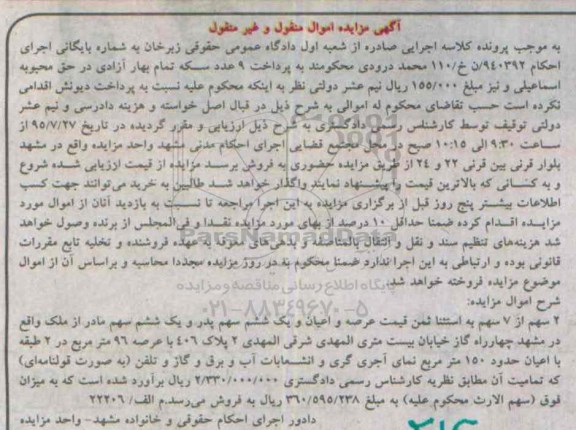 آگهی مزایده اموال منقول و غیر منقول
به موجب پرونده کلاسه اجرایی صادره از شعبه اول دادگاه عمومی حقوقی زبرخان به شماره بایگانی اجرای
احکام ۹۴۰۳۹۲/ن خ/۱۱۰ محمد درودی محکومند به پرداخت ۹ عدد سکه تمام بهار آزادی در حق محبوبه
اسماعیلی و نیز مبلغ ۱۵۵/۰۰۰ ریال نیم عشر دولتی نظر به اینکه محکوم علیه نسبت به پرداخت دیونش اقدامی
نکرده است حسب تقاضای محکوم له اموالی به شرح ذیل در قبال اصل خواسته و هزینه دادرسی و نیم عشر
دولتی توقیف توسط کارشناس رسمی دادگستری به شرح ذیل ارزیابی و مقرر گردیده در تاریخ ۹۵/۷/۲۷ از
ساعت ۹:۳۰ الی ۱۰:۱۵ صبح در محل مجتمع قضایی اجرای احکام مدنی مشهد واحد مزایده واقع در مشهد
بلوار قرنی بین قرنی ۲۲ و ۲۴ از طریق مزایده حضوری به فروش برسد مزایده از قیمت ارزیابی شده شروع
و به کسانی که بالاترین قیمت را پیشنهاد نمایند واگذار خواهد شد طالبین به خرید می‌توانند جهت کسب
اطلاعات بیشتر پنج روز قبل از برگزاری مزایده به این اجرا مراجعه تا نسبت به بازدید آنان از اموال مورد
مزایده اقدام کرده ضمنا حداقل ۱۰ درصد از بهای مورد مزایده نقدا و فی‌المجلس از برنده وصول خواهد
شد هزینه‌های تنظیم سند و نقل و انتقال بالمناصفه و بدهی‌های معوقه به عهده فروشنده و تخلیه تابع مقررات
قانونی بوده و ارتباطی به این اجرا ندارد ضمنا محکوم به در روز مزایده مجددا محاسبه و براساس آن از اموال
موضوع مزایده فروخته خواهد شد.
پایگاه اطلاع رسانی مناقصه و مزایده
ParsNamadData
۰۲۱-۸۸۳۴۹۶۷۰-۵
شرح اموال مزایده:
۲ سهم از ۷ سهم به استثنا ثمن قیمت عرصه و اعیان و یک ششم سهم پدر و یک ششم سهم مادر از ملک واقع
در مشهد چهارراه گاز خیابان بیست متری المهدی شرقی المهدی ۲ پلاک ۴۰۶ با عرصه ۹۶ متر مربع در ۲ طبقه
با اعیان حدود ۱۵۰ متر مربع نمای آجری گری و انشعابات آب و برق و گاز و تلفن (به صورت قولنامه‌ای)
که تمامیت آن مطابق نظریه کارشناس رسمی دادگستری ۲/۳۳۰/۰۰۰/۰۰۰ ریال برآورد شده است که به میزان
فوق (سهم الارث محکوم علیه) به مبلغ ۳۶۰/۵۹۵/۲۳۸ ریال به فروش می‌رسد.م الف/ ۲۲۲۰۶
دادور اجرای احکام حقوقی و خانواده مشهد- واحد مزایده